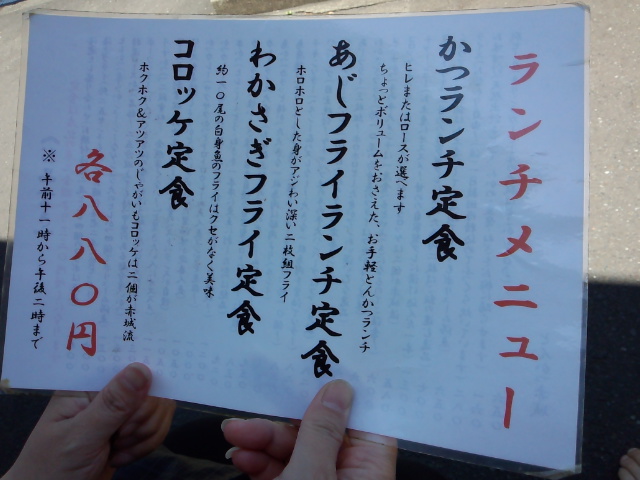 ランチメニュー
かつランチ定食
ヒレまたはロースが選べます
ちょっとボリュームをおさえた、お手軽とんかつランチ
あじフライランチ定食
ホロホロとした身がアジわい深い二枚組フライ
わかさぎフライ定食
約一〇尾の白身魚のフライはクセがなく美味
コロッケ定食
ホクホク&アツアツのじゃがいもコロッケは二個が赤城流
各八八〇円
※ 午前十一時から午後二時まで